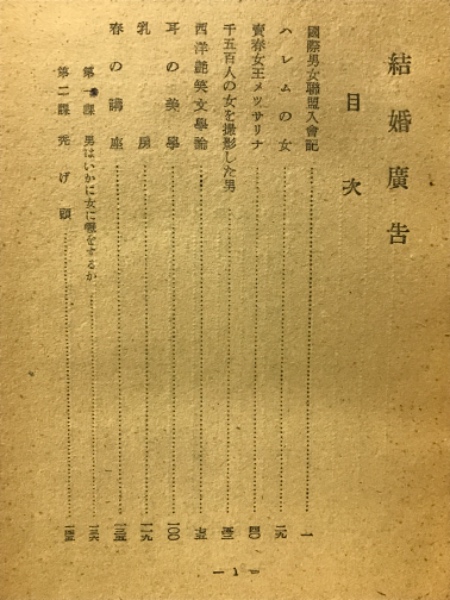 結婚廣告
目次
國際男女聯盟入會記……一
ハレムの女……二九
賣春女王メツサリナ……四〇
千五百人の女を撮影した男
西洋艶笑文學論
耳の美學……一〇〇
乳房……一一九
春の講座……一三五
第一課 男はいかに女に囁をするか……一三六
第二課 禿げ頭……一四五
— 1 —